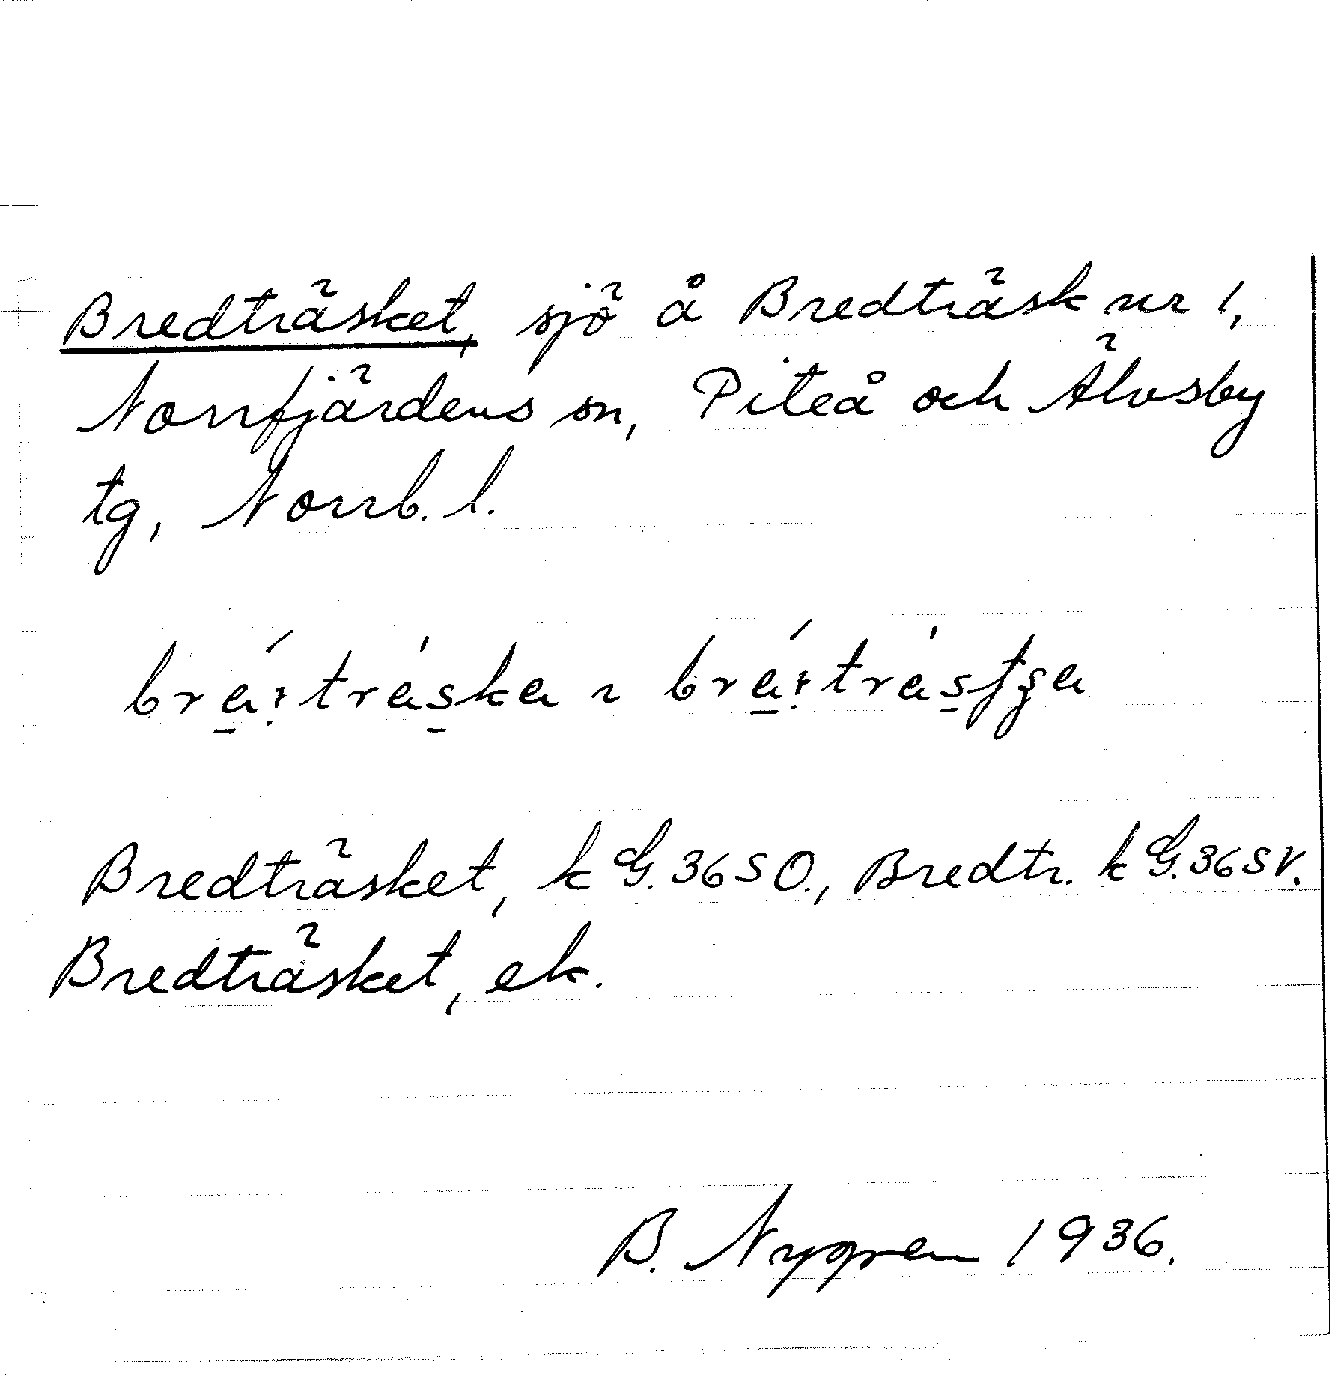 Bredträsket, sjö å Bredträsk nr 1,
Norrfjärdens sn, Piteå och Älvsby
tg, Norrb. l.
Bredträsket, k G. 36 SO., Bredtr. k G. 36 SV.
Bredträsket, ek.
B. Nygren 1936.